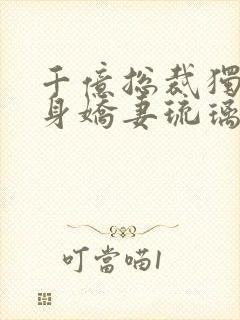 千億總裁獨
身嬌妻琉璃
叮當喵1